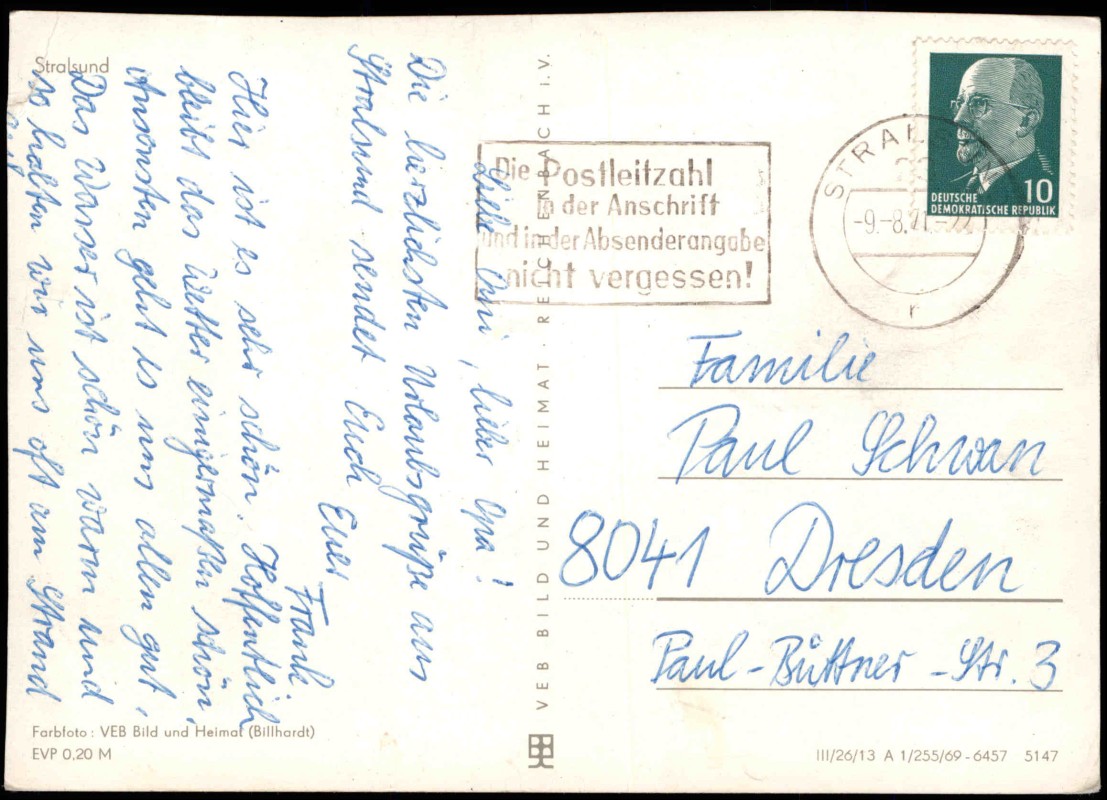 Stralsund
Liebe Omi, lieber Opa!
Die herzlichsten Urlaubsgrüße aus
Stralsund sendet Euch
Euer
Frank
Hier ist es sehr schön. Hoffentlich
bleibt das Wetter einigermaßen schön,
Ansonsten geht es uns allen gut,
Das Wasser ist schön warm und
so halten wir uns oft am Strand
VEB BILD UND HEIMAT · REICHENBACH i. V.
Die Postleitzahl
in der Anschrift
und in der Absenderangabe
nicht vergessen!
STRALS
-9.-8.71
r
10
DEUTSCHE
DEMOKRATISCHE REPUBLIK
Familie
Paul Schwan
8041 Dresden
Paul-Büttner-Str. 3
Farbfoto: VEB Bild und Heimat (Billhardt)
EVP 0,20 M
III/26/13 A 1/255/69-6457 5147